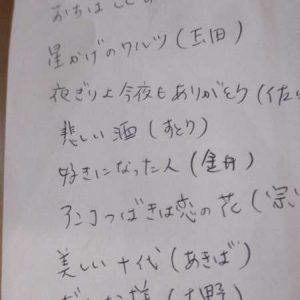 おちば
星かげのワルツ(玉田)
夜ぎりよ今夜もありがとう(佐
悲しい酒(すとり)
好きになった人(金井)
アンコつばきは恋の花(宗
美しい十代(あきば)